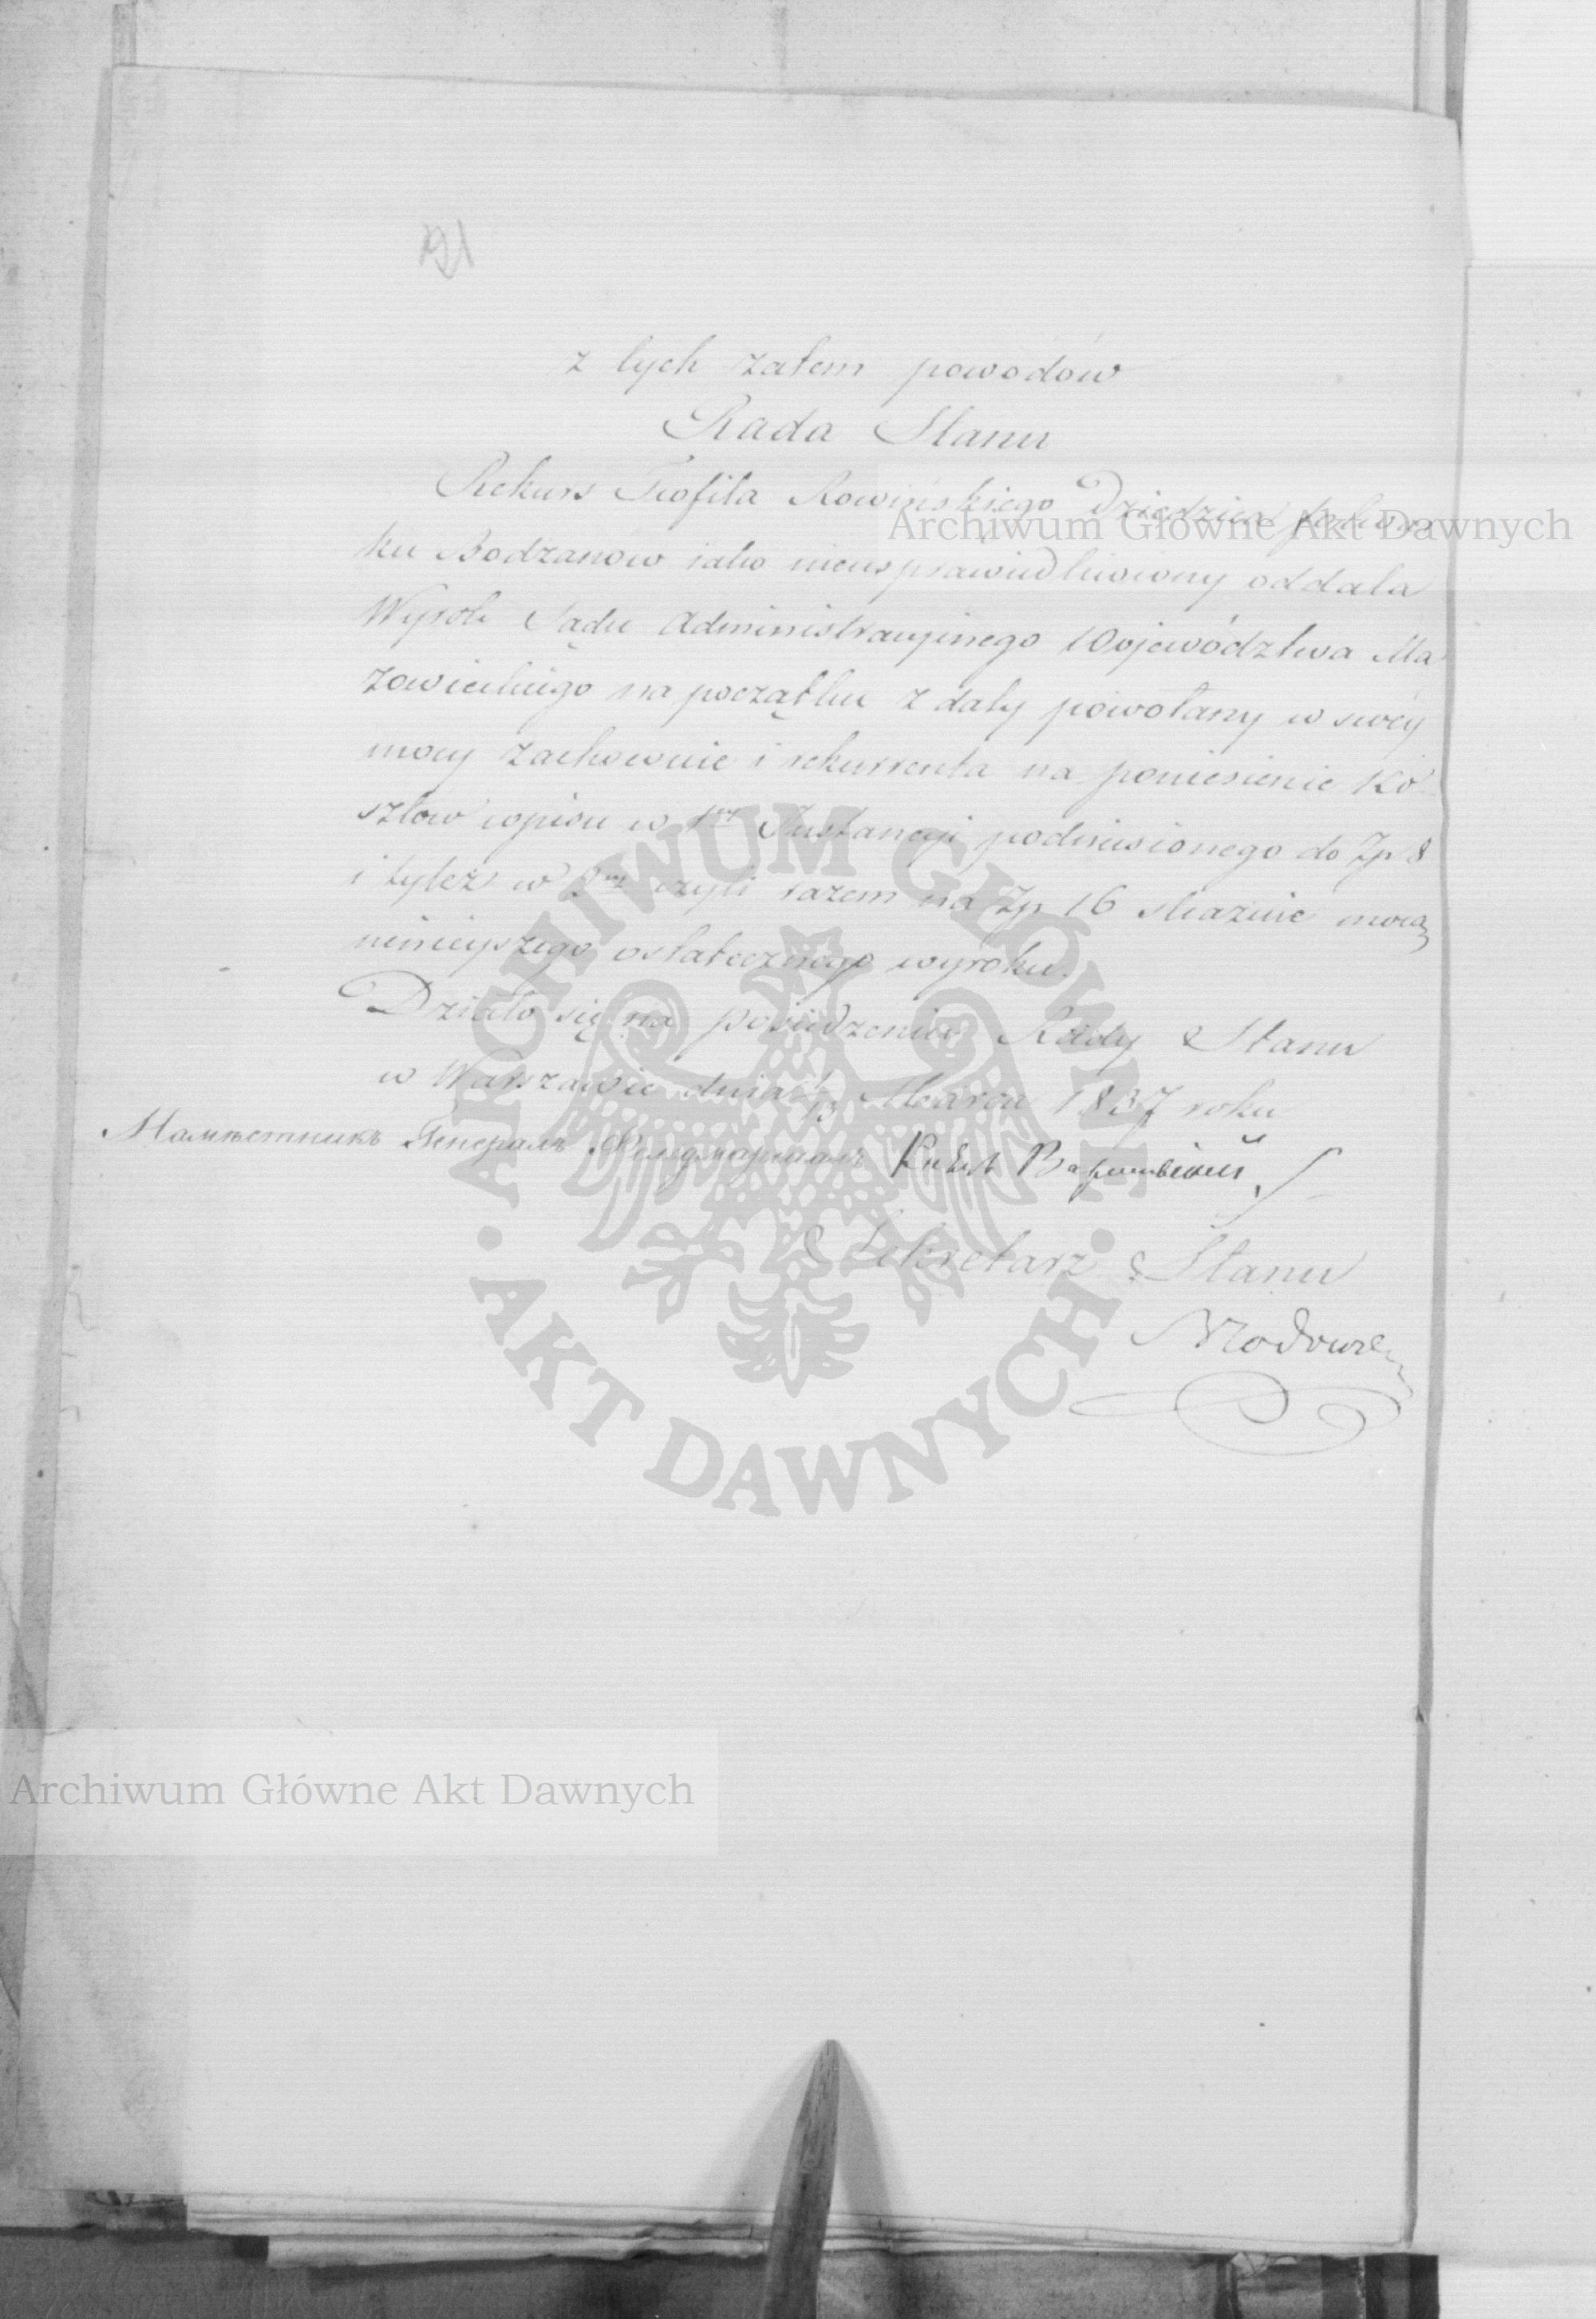 z tych zatem powodów
Rada Stanu
Rekurs Teofila Rowińskiego Dziedzica folwar
ku Bodzanow iako nieusprawiedliwiony oddala
Wyrok Sądu Administracyinego Województwa Ma
zowieckiego na początku z daty powołany w swéy
mocy zachowuie i rekurrenta na poniesienie Ko
sztow wpisu w 1wszej Instancyi podniesionego do Zp 8
i tyleż w 2giej czyli razem na Zp 16 skazuie mocą
ninieyszego ostatecznego wyroku.
Działo się na posiedzeniu Rady Stanu
w Warszawie dnia 1/13 Marca 1837 roku
Намѣстникъ Генералъ Фельдмаршалъ Князь Варшавскій
Sekretarz Stanu
Archiwum Główne Akt Dawnych
ARCHIWUM GŁÓWNE
AKT DAWNYCH
Archiwum Główne Akt Dawnych